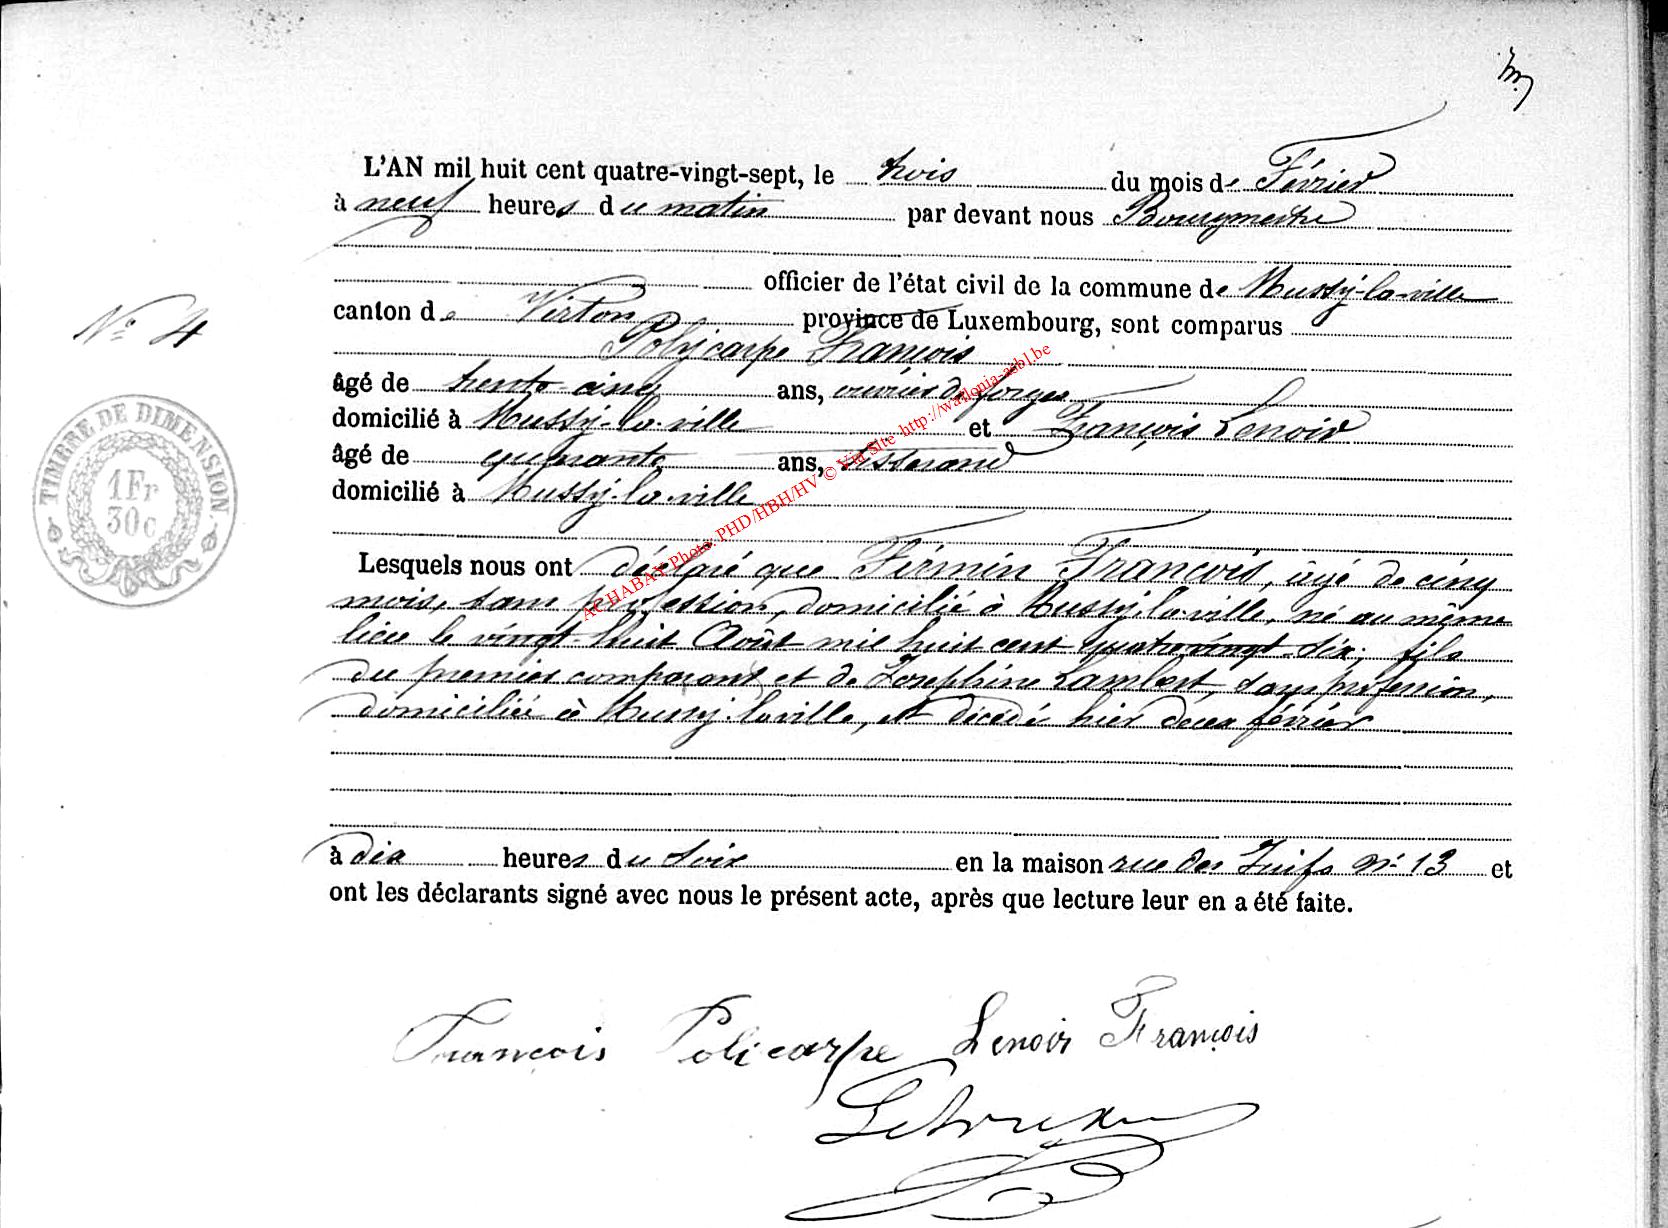 L'AN mil huit cent quatre-vingt-sept, le trois du mois de Février
à neuf heures du matin par devant nous Bourgmestre
officier de l'état civil de la commune de Mussy-la-ville
canton de Virton province de Luxembourg, sont comparus
Polycarpe François
âgé de trente-cinq ans, ouvrier de forges
domicilié à Mussy-la-ville et François Lenoir
âgé de quarante ans, tisserand
domicilié à Mussy-la-ville
Lesquels nous ont déclaré que Firmin François, âgé de cinq
mois, sans profession, domicilié à Mussy-la-ville, né au même
lieu le vingt-huit Août mil huit cent quatre vingt-six; fils
du premier comparant et de Joséphine Lambert, sans profession,
domiciliée à Mussy-la-ville, est décédé hier deux février
à dix heures du soir en la maison rue des Juifs N° 13 et
ont les déclarants signé avec nous le présent acte, après que lecture leur en a été faite.
François Policarpe Lenoir François
N° 4
TIMBRE DE DIMENSION
1 Fr
30 c
ACHABAY Photo: PHD/HBH/HV © Via Site http://wallonia-asbl.be